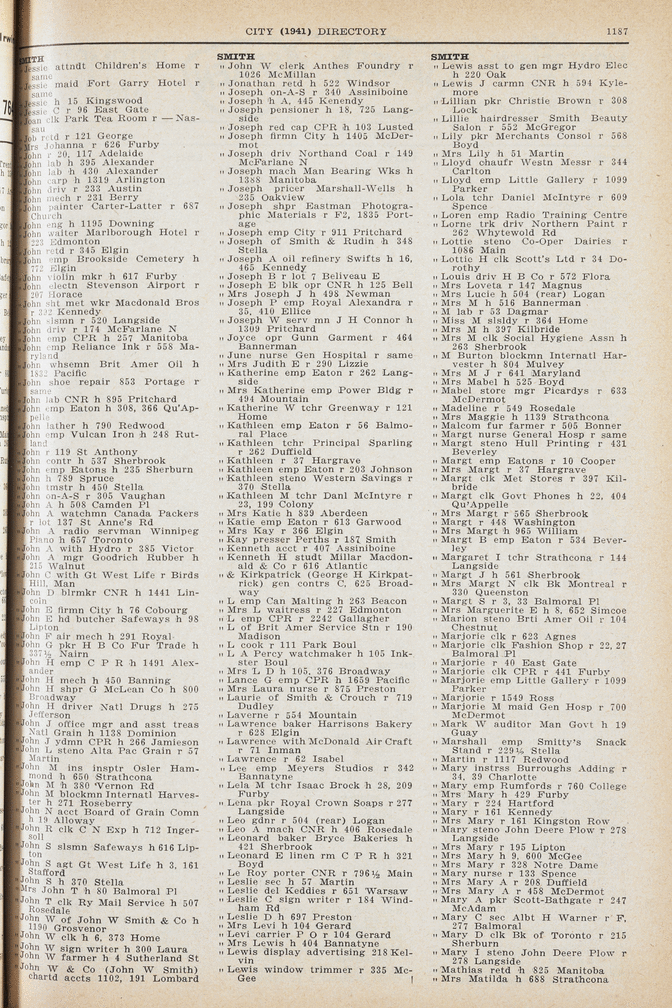 CITY (1941) DIRECTORY 1187
SMITH
Jessie attndt Children's Home r
same
Jessie maid Fort Garry Hotel r
same
Jessie h 15 Kingswood
Jessie C r 96 East Gate
Joan clk Park Tea Room r — Nas-
sau
Job retd r 121 George
Mrs Johanna r 626 Furby
John r 20, 117 Adelaide
John lab h 395 Alexander
John lab h 430 Alexander
John carp h 1319 Arlington
John driv r 233 Austin
John mech r 231 Berry
John painter Carter-Latter r 687
Church
John eng h 1195 Downing
John waiter Marlborough Hotel r
223 Edmonton
John retd r 345 Elgin
John emp Brookside Cemetery h
772 Elgin
John violin mkr h 617 Furby
John electn Stevenson Airport r
207 Horace
John sht met wkr Macdonald Bros
r 392 Kennedy
John slsmn r 520 Langside
John driv r 174 McFarlane N
John emp CPR h 257 Manitoba
John emp Reliance Ink r 558 Ma-
ryland
John whsemn Brit Amer Oil h
1832 Pacific
John shoe repair 853 Portage r
same
John lab CNR h 895 Pritchard
John emp Eaton h 308, 366 Qu'Ap-
pelle
John lather h 790 Redwood
John emp Vulcan Iron h 248 Rut-
land
John r 119 St Anthony
John contr h 537 Sherbrook
John emp Eatons h 235 Sherburn
John h 789 Spruce
John tmstr h 450 Stella
John on-A-S r 305 Vaughan
John A h 508 Camden Pl
John A watchmn Canada Packers
r lot 137 St Anne's Rd
John A radio servman Winnipeg
Piano h 657 Toronto
John A with Hydro r 385 Victor
John A mgr Goodrich Rubber h
215 Walnut
John C with Gt West Life r Birds
Hill, Man
John D blrmkr CNR h 1441 Lin-
coln
John E firmn City h 76 Cobourg
John E hd butcher Safeways h 98
Lipton
John F air mech h 291 Royal
John G pkr H B Co Fur Trade h
337½ Nairn
John H emp C P R h 1491 Alex-
ander
John H mech h 450 Banning
John H shpr G McLean Co h 800
Broadway
John H driver Natl Drugs h 275
Jefferson
John J office mgr and asst treas
Natl Grain h 1138 Dominion
John J ydmn CPR h 266 Jamieson
John L steno Alta Pac Grain r 57
Martin
John M ins insptr Osler Ham-
mond h 650 Strathcona
John M h 380 Vernon Rd
John M blockmn Internatl Harves-
ter h 271 Roseberry
John N acct Board of Grain Comn
h 19 Alloway
John R clk C N Exp h 712 Inger-
soll
John S slsmn Safeways h 616 Lip-
ton
John S agt Gt West Life h 3, 161
Stafford
John S h 370 Stella
Mrs John T h 80 Balmoral Pl
John T clk Ry Mail Service h 507
Rosedale
John W of John W Smith & Co h
1190 Grosvenor
John W clk h 6, 373 Home
John W sign writer h 300 Laura
John W farmer h 4 Sutherland St
John W & Co (John W Smith)
chartd accts 1102, 191 Lombard
SMITH
" John W clerk Anthes Foundry r
1026 McMillan
" Jonathan retd h 522 Windsor
" Joseph on-A-S r 340 Assiniboine
" Joseph h A, 445 Kenendy
" Joseph pensioner h 18, 725 Lang-
side
" Joseph red cap CPR h 103 Lusted
" Joseph firmn City h 1405 McDer-
mot
" Joseph driv Northand Coal r 149
McFarlane N
" Joseph mach Man Bearing Wks h
1388 Manitoba
" Joseph pricer Marshall-Wells h
235 Oakview
" Joseph shpr Eastman Photogra-
phic Materials r F2, 1835 Port-
age
" Joseph emp City r 911 Pritchard
" Joseph of Smith & Rudin h 348
Stella
" Joseph A oil refinery Swifts h 16,
465 Kennedy
" Joseph B r lot 7 Beliveau E
" Joseph E blk opr CNR h 125 Bell
" Mrs Joseph J h 498 Newman
" Joseph P emp Royal Alexandra r
35, 410 Ellice
" Joseph W serv mn J H Connor h
1309 Pritchard
" Joyce opr Gunn Garment r 464
Bannerman
" June nurse Gen Hospital r same
" Mrs Judith E r 290 Lizzie
" Katherine emp Eaton r 262 Lang-
side
" Mrs Katherine emp Power Bldg r
494 Mountain
" Katherine W tchr Greenway r 121
Home
" Kathleen emp Eaton r 56 Balmo-
ral Place
" Kathleen tchr Principal Sparling
r 262 Duffield
" Kathleen r 37 Hargrave
" Kathleen emp Eaton r 203 Johnson
" Kathleen steno Western Savings r
370 Stella
" Kathleen M tchr Danl McIntyre r
23, 199 Colony
" Mrs Katie h 839 Aberdeen
" Katie emp Eaton r 613 Garwood
" Mrs Kay r 366 Elgin
" Kay presser Perths r 187 Smith
" Kenneth acct r 407 Assiniboine
" Kenneth H studt Millar Macdon-
ald & Co r 616 Atlantic
" & Kirkpatrick (George H Kirkpat-
rick) gen contrs C, 625 Broad-
way
" L emp Can Malting h 263 Beacon
" Mrs L waitress r 227 Edmonton
" L emp CPR r 2242 Gallagher
" L of Brit Amer Service Stn r 190
Madison
" L cook r 111 Park Boul
" L A Percy watchmaker h 105 Ink-
ster Boul
" Mrs L D h 105, 376 Broadway
" Lance G emp CPR h 1659 Pacific
" Mrs Laura nurse r 875 Preston
" Laurie of Smith & Crouch r 719
Dudley
" Laverne r 554 Mountain
" Lawrence baker Harrisons Bakery
r 628 Elgin
" Lawrence with McDonald Air Craft
r 71 Inman
" Lawrence r 62 Isabel
" Lee emp Meyers Studios r 342
Bannatyne
" Lela M tchr Isaac Brock h 28, 209
Furby
" Lena pkr Royal Crown Soaps r 277
Langside
" Leo gdnr r 504 (rear) Logan
" Leo A mach CNR h 406 Rosedale
" Leonard baker Bryce Bakeries h
421 Sherbrook
" Leonard E linen rm C P R h 321
Boyd
" Le Roy porter CNR r 796½ Main
" Leslie sec h 57 Martin
" Leslie del Keddies r 651 Warsaw
" Leslie C sign writer r 184 Wind-
ham Rd
" Leslie D h 697 Preston
" Mrs Levi h 104 Gerard
" Levi carrier P O r 104 Gerard
" Mrs Lewis h 404 Bannatyne
" Lewis display advertising 218 Kel-
vin
" Lewis window trimmer r 335 Mc-
Gee
SMITH
" Lewis asst to gen mgr Hydro Elec
h 220 Oak
" Lewis J carmn CNR h 594 Kyle-
more
" Lillian pkr Christie Brown r 308
Lock
" Lillie hairdresser Smith Beauty
Salon r 552 McGregor
" Lily pkr Merchants Consol r 568
Boyd
" Mrs Lily h 51 Martin
" Lloyd chaufr Westn Messr r 344
Carlton
" Lloyd emp Little Gallery r 1099
Parker
" Lola tchr Daniel McIntyre r 609
Spence
" Loren emp Radio Training Centre
" Lorne trk driv Northern Paint r
262 Whytewold Rd
" Lottie steno Co-Oper Dairies r
1086 Main
" Lottie H clk Scott's Ltd r 34 Do-
rothy
" Louis driv H B Co r 572 Flora
" Mrs Loveta r 147 Magnus
" Mrs Lucie h 504 (rear) Logan
" Mrs M h 516 Bannerman
" M lab r 53 Dagmar
" Miss M slsldy r 364 Home
" Mrs M h 397 Kilbride
" Mrs M clk Social Hygiene Assn h
263 Sherbrook
" M Burton blockmn Internatl Har-
vester h 804 Mulvey
" Mrs M J r 641 Maryland
" Mrs Mabel h 525 Boyd
" Mabel store mgr Picardys r 633
McDermot
" Madeline r 549 Rosedale
" Mrs Maggie h 1139 Strathcona
" Malcom fur farmer r 505 Bonner
" Margt nurse General Hosp r same
" Margt steno Hull Printing r 431
Beverley
" Margt emp Eatons r 10 Cooper
" Mrs Margt r 37 Hargrave
" Margt clk Met Stores r 397 Kil-
bride
" Margt clk Govt Phones h 22, 404
Qu'Appelle
" Mrs Margt r 565 Sherbrook
" Margt r 448 Washington
" Mrs Margt h 965 William
" Margt B emp Eaton r 534 Bever-
ley
" Margaret I tchr Strathcona r 144
Langside
" Margt J h 561 Sherbrook
" Mrs Margt N clk Bk Montreal r
330 Queenston
" Margt S r 3, 33 Balmoral Pl
" Mrs Marguerite E h 8, 652 Simcoe
" Marion steno Brti Amer Oil r 104
Chestnut
" Marjorie clk r 623 Agnes
" Marjorie clk Fashion Shop r 22, 27
Balmoral Pl
" Marjorie r 40 East Gate
" Marjorie clk CPR r 441 Furby
" Marjorie emp Little Gallery r 1099
Parker
" Marjorie r 1549 Ross
" Marjorie M maid Gen Hosp r 700
McDermot
" Mark W auditor Man Govt h 19
Guay
" Marshall emp Smitty's Snack
Stand r 229½ Stella
" Martin r 1117 Redwood
" Mary instrss Burroughs Adding r
34, 39 Charlotte
" Mary emp Rumfords r 760 College
" Mrs Mary h 429 Furby
" Mary r 224 Hartford
" Mary r 161 Kennedy
" Mrs Mary r 161 Kingston Row
" Mary steno John Deere Plow r 278
Langside
" Mrs Mary r 195 Lipton
" Mrs Mary h 9, 600 McGee
" Mrs Mary r 328 Notre Dame
" Mary nurse r 133 Spence
" Mrs Mary A r 208 Duffield
" Mrs Mary A r 458 McDermot
" Mary A pkr Scott-Bathgate r 247
McAdam
" Mary C sec Albt H Warner r F,
277 Balmoral
" Mary D clk Bk of Toronto r 215
Sherburn
" Mary I steno John Deere Plow r
278 Langside
" Mathias retd h 825 Manitoba
" Mrs Matilda h 688 Strathcona